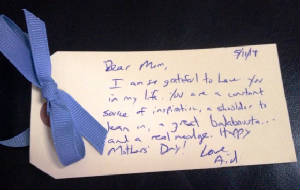 5/11/14
Dear Mom,
I am so grateful to have you
in my life. You are a constant
source of inspiration, a shoulder to
lean in, a great balabousta...
and a real medge. Happy
Mothers' Day!
Love